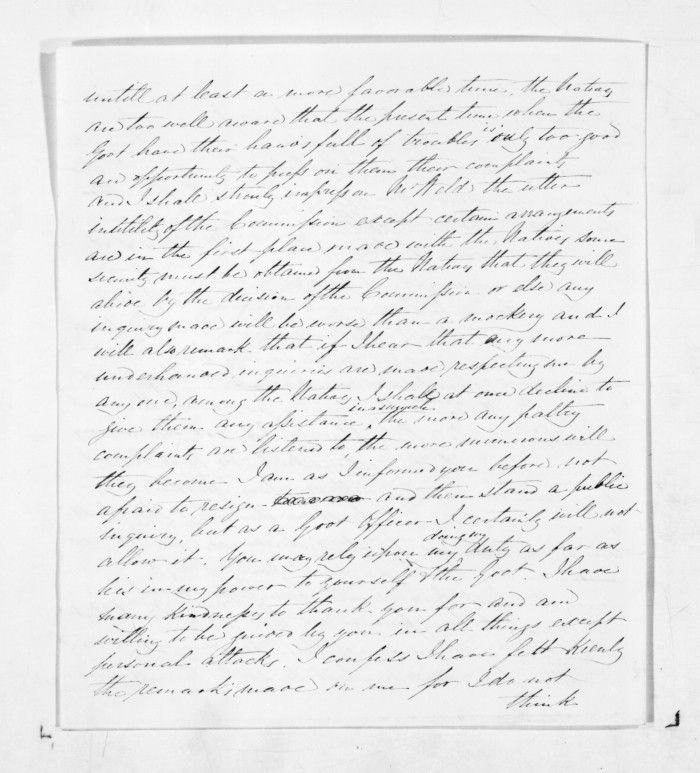 untill at least a more favorable time, the Natives
are too well aware that the present time when the
Govt have their hands full of troubles is only too good
an opportunity to press on them their complaints
and I shall strongly impress on Mr Weld the utter
inutility of the Commission except certain arrangements
are in the first place made with the Natives some
security must be obtained from the Natives that they will
abide by the decision of the Commission or else any
inquiry made will be worse than a mockery and I
will also remark that if I hear that any more
underhanded inquiries are made respecting me by
any one, among the Natives I shall at once decline to
give them any assistance, inasmuch the more any paltry
complaints are listened to, the more numerous will
they become I am as I informed you before not
afraid to resign and then stand a public
inquiry, but as a Govt Officer I certainly will not
allow it. You may rely upon my doing my duty as far as
lies in my power to yourself & the Govt. I have
many kindnesses to thank you for and am
willing to be guided by you in all things except
personal attacks. I confess I have felt keenly
the remarks made on me for I do not
think